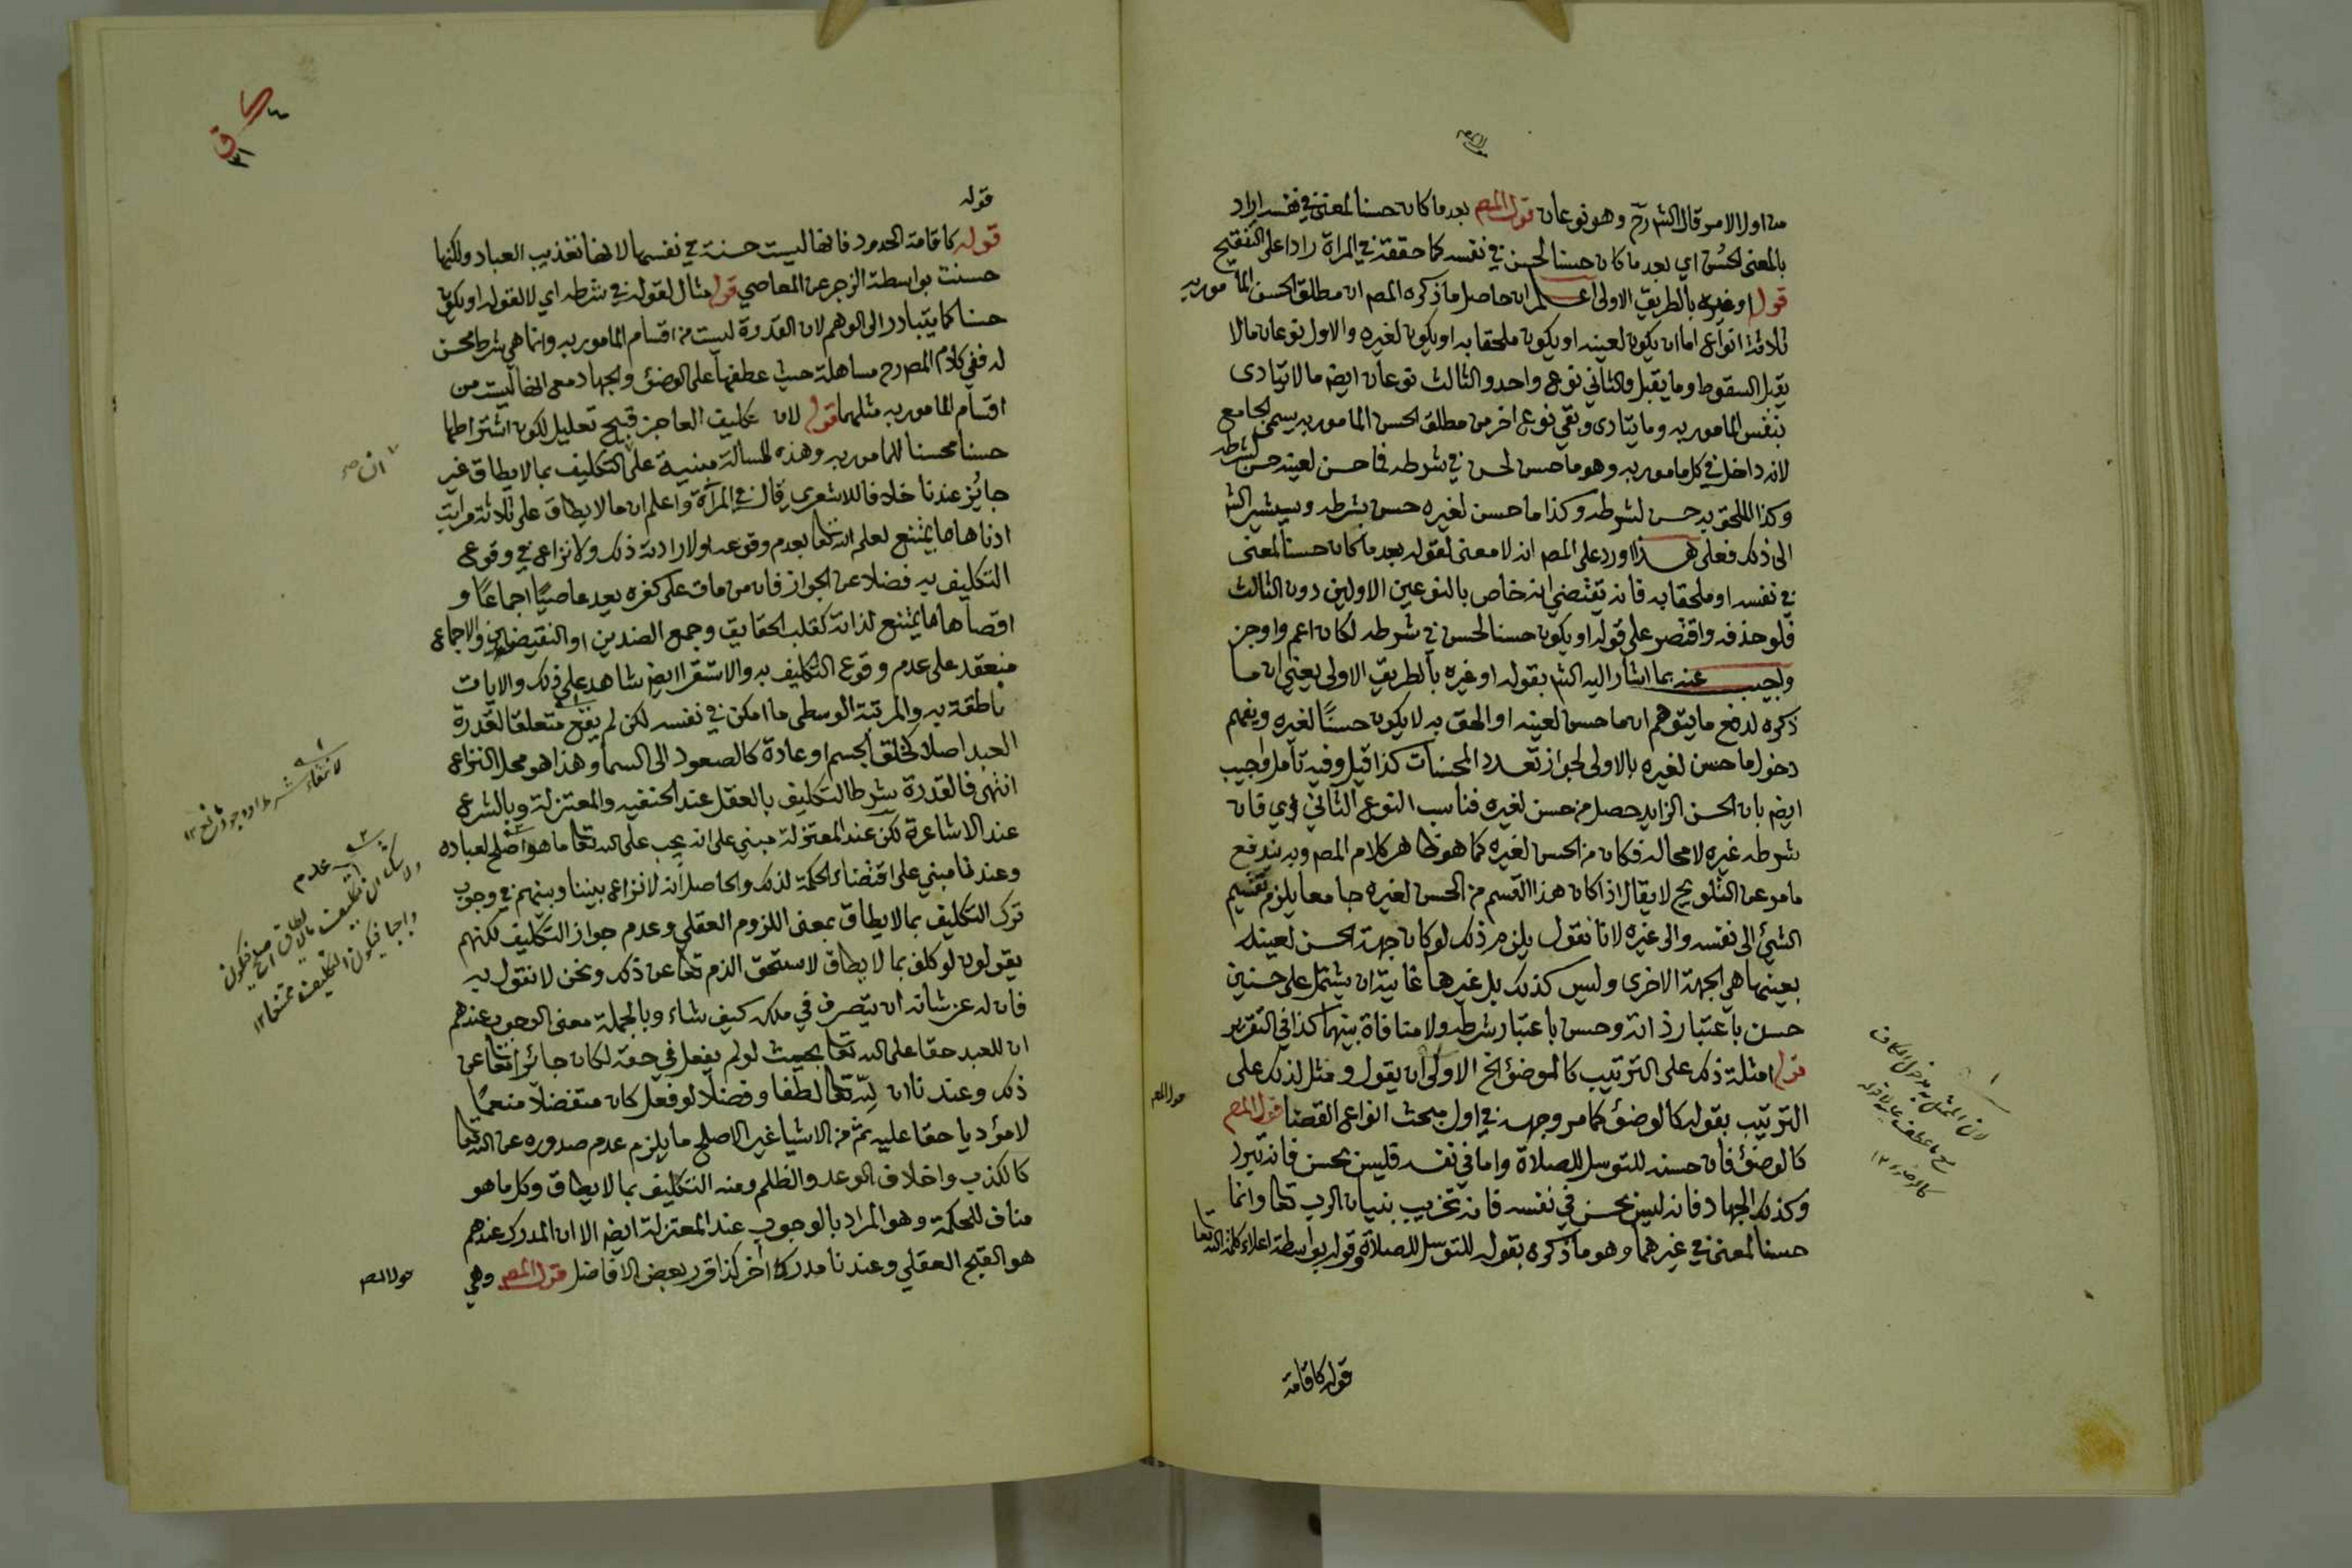 من اول الامر قال الش رح وهو نوعان قول المص بعد ما كان حسنا لمعنى في نفسه اراد
بالمعنى الحُسن اي بعد ما كان حسنا لحسن في نفسه كما حققة في المراة رادا على التنقيح
قوله او غيره بالطريق الاولى اعلم ان حاصل ما ذكره المص ان مطلق الحسن المامور به
ثلاثة انواع اما ان يكون لعينه او يكون ملحقا به او يكون لغيره والاول نوعان ما لا
يقبل السقوط وما يقبل والثاني نوع واحد والثالث نوعان ايض ما لا يتادى
بنفس المامور به وما يتادى وبقي نوع اخر من مطلق الحسن المامور به يسمى الجامع
لانه داخل في كل مامور به وهو ما حسن لحسن في شرطه فما حسن لعينه حسن لشرطه
وكذا الملحق به حسن لشرطه وكذا ما حسن لغيره حسن بشرطه وسيشير الش
الى ذلك فعلى هذا اورد على المص انه لا معنى لقوله بعد ما كان حسنا لمعنى
في نفسه او ملحقا به فانه يقتضي انه خاص بالنوعين الاولين دون الثالث
فلو حذفه واقتصر على قوله او يكون حسنا لحسن في شرطه لكان اعم واوجز
واجيب عنه بما اشار اليه الش بقوله او غيره بالطريق الاولى يعني ان ما
ذكره لدفع ما يتوهم ان ما حسن لعينه او الحق به لا يكون حسنًا لغيره ويفهم
دخول ما حسن لغيره بالاولى لجواز تعدد المحسنات كذا قيل وفيه تأمل واجيب
ايض بان الحسن الزايد حصل من حسن لغيره فناسب النوع الثاني اي فان
شرطه غيره لا محالة فكان من الحسن لغيره كما هو ظاهر كلام المص وبه يندفع
ما مر عن التلويح لا يقال اذا كان هذا القسم من الحسن لغيره جامعا يلزم تقسيم
الشئ الى نفسه والى غيره لانا نقول يلزم ذلك لو كان جهة الحسن لعينه
بعينها هي الجهة الاخرى وليس كذلك بل غيرها غايته ان يشتمل على حسنين
حسن باعتبار ذاته وحسن باعتبار شرطه ولا منافاة بينهما كذا في التقرير
قوله امثلة ذلك على الترتيب كالوضؤ الخ الاولى ان يقول ومثل لذلك على
الترتيب بقوله كالوضؤ كما مر وجهه في اول مبحث انواع القضا قول المص
كالوضؤ فان حسنه للتوسل للصلاة واما في نفسه فليس بحسن فانه تبرد
وكذلك الجهاد فانه ليس بحسن في نفسه فانه تخريب بنيان الرب تعا وانما
حسنا لمعنى في غيرهما وهو ما ذكره بقوله للتوسل للصلاة وقوله بواسطة اعلاء كلمة الله تعا
قول المص
لان المتمثل به مدخول الكاف
قوله كاقامة
قوله
قوله كاقامة الحدود فانها ليست حسنة في نفسها لانها تعذيب العباد ولكنها
حسنت بواسطة الزجر عن المعاصي قوله مثال لقوله في شرطه اي لا لقوله او يكون
حسنا كما يتبادر الى الوهم لان القدرة ليست من اقسام المامور به وانما هي شرط لحسن
له ففي كلام المص رح مساهلة حيث عطفها على الوضؤ والجهاد مع انها ليست من
اقسام المامور به مثلهما قوله لان تكليف العاجز قبيح تعليل لكون اشتراطها
حسنا محسنا للمامور به وهذه المسالة مبنية على التكليف بما لا يطاق غير
جايز عندنا خلافا للاشعري قال في المرآة واعلم ان ما لا يطاق على ثلاثة مراتب
ادناها ما يمتنع لعلم الله تعا بعدم وقوعه او لارادته ذلك ولا نزاع في وقوع
التكليف به فضلا عن الجواز فان من مات على كفره يعد عاصيًا اجماعًا و
اقصاها ما يمتنع لذاته كقلب الحقايق وجمع الضدين او النقيضين والاجماع
منعقد على عدم وقوع التكليف به والاستقرا ايض شاهد على ذلك والايات
ناطقة به والمرتبة الوسطى ما امكن في نفسه لكن لم يقع متعلقا لقدرة
العبد اصلا كخلق الجسم او عادة كالصعود الى السما وهذا هو محل النزاع
انتهى فالقدرة شرط التكليف بالعقل عند الحنفيه والمعتزلة وبالشرع
عند الاشاعرة لكن عند المعتزلة مبني على انه يجب على الله تعا ما هو اصلح لعباده
وعندنا مبني على اقتضاء الحكمة لذلك والحاصل انه لا نزاع بيننا وبينهم في وجوب
ترك التكليف بما لا يطاق بمعنى اللزوم العقلي وعدم جواز التكليف لكنهم
يقولون لو كلف بما لا يطاق لاستحق الذم تعا عن ذلك ونحن لا نقول به
فان له عز شانه ان يتصرف في ملكه كيف شاء وبالجملة معنى الوجوب عندهم
ان للعبد حقا على الله تعا بحيث لو لم يفعل في حقه لكان جائرا تعا عن
ذلك وعندنا ان لله تعا لطفا وفضلا لو فعل كان متفضلا منعمًا
لا مؤديا حقا عليه ثم من الاشيا غير الاصلح ما يلزم عدم صدوره عن الله تعا
كالكذب واخلاف الوعد والظلم ومنه التكليف بما لا يطاق وكل ما هو
مناف للحكمة وهو المراد بالوجوب عند المعتزلة ايض الا ان المدرك عندهم
هو القبح العقلي وعندنا مدرك اخر كذا قرر بعض الافاضل قول المص وهي
ان صح
لانتفاء شرط او وجود مانع ١٢
قول المص